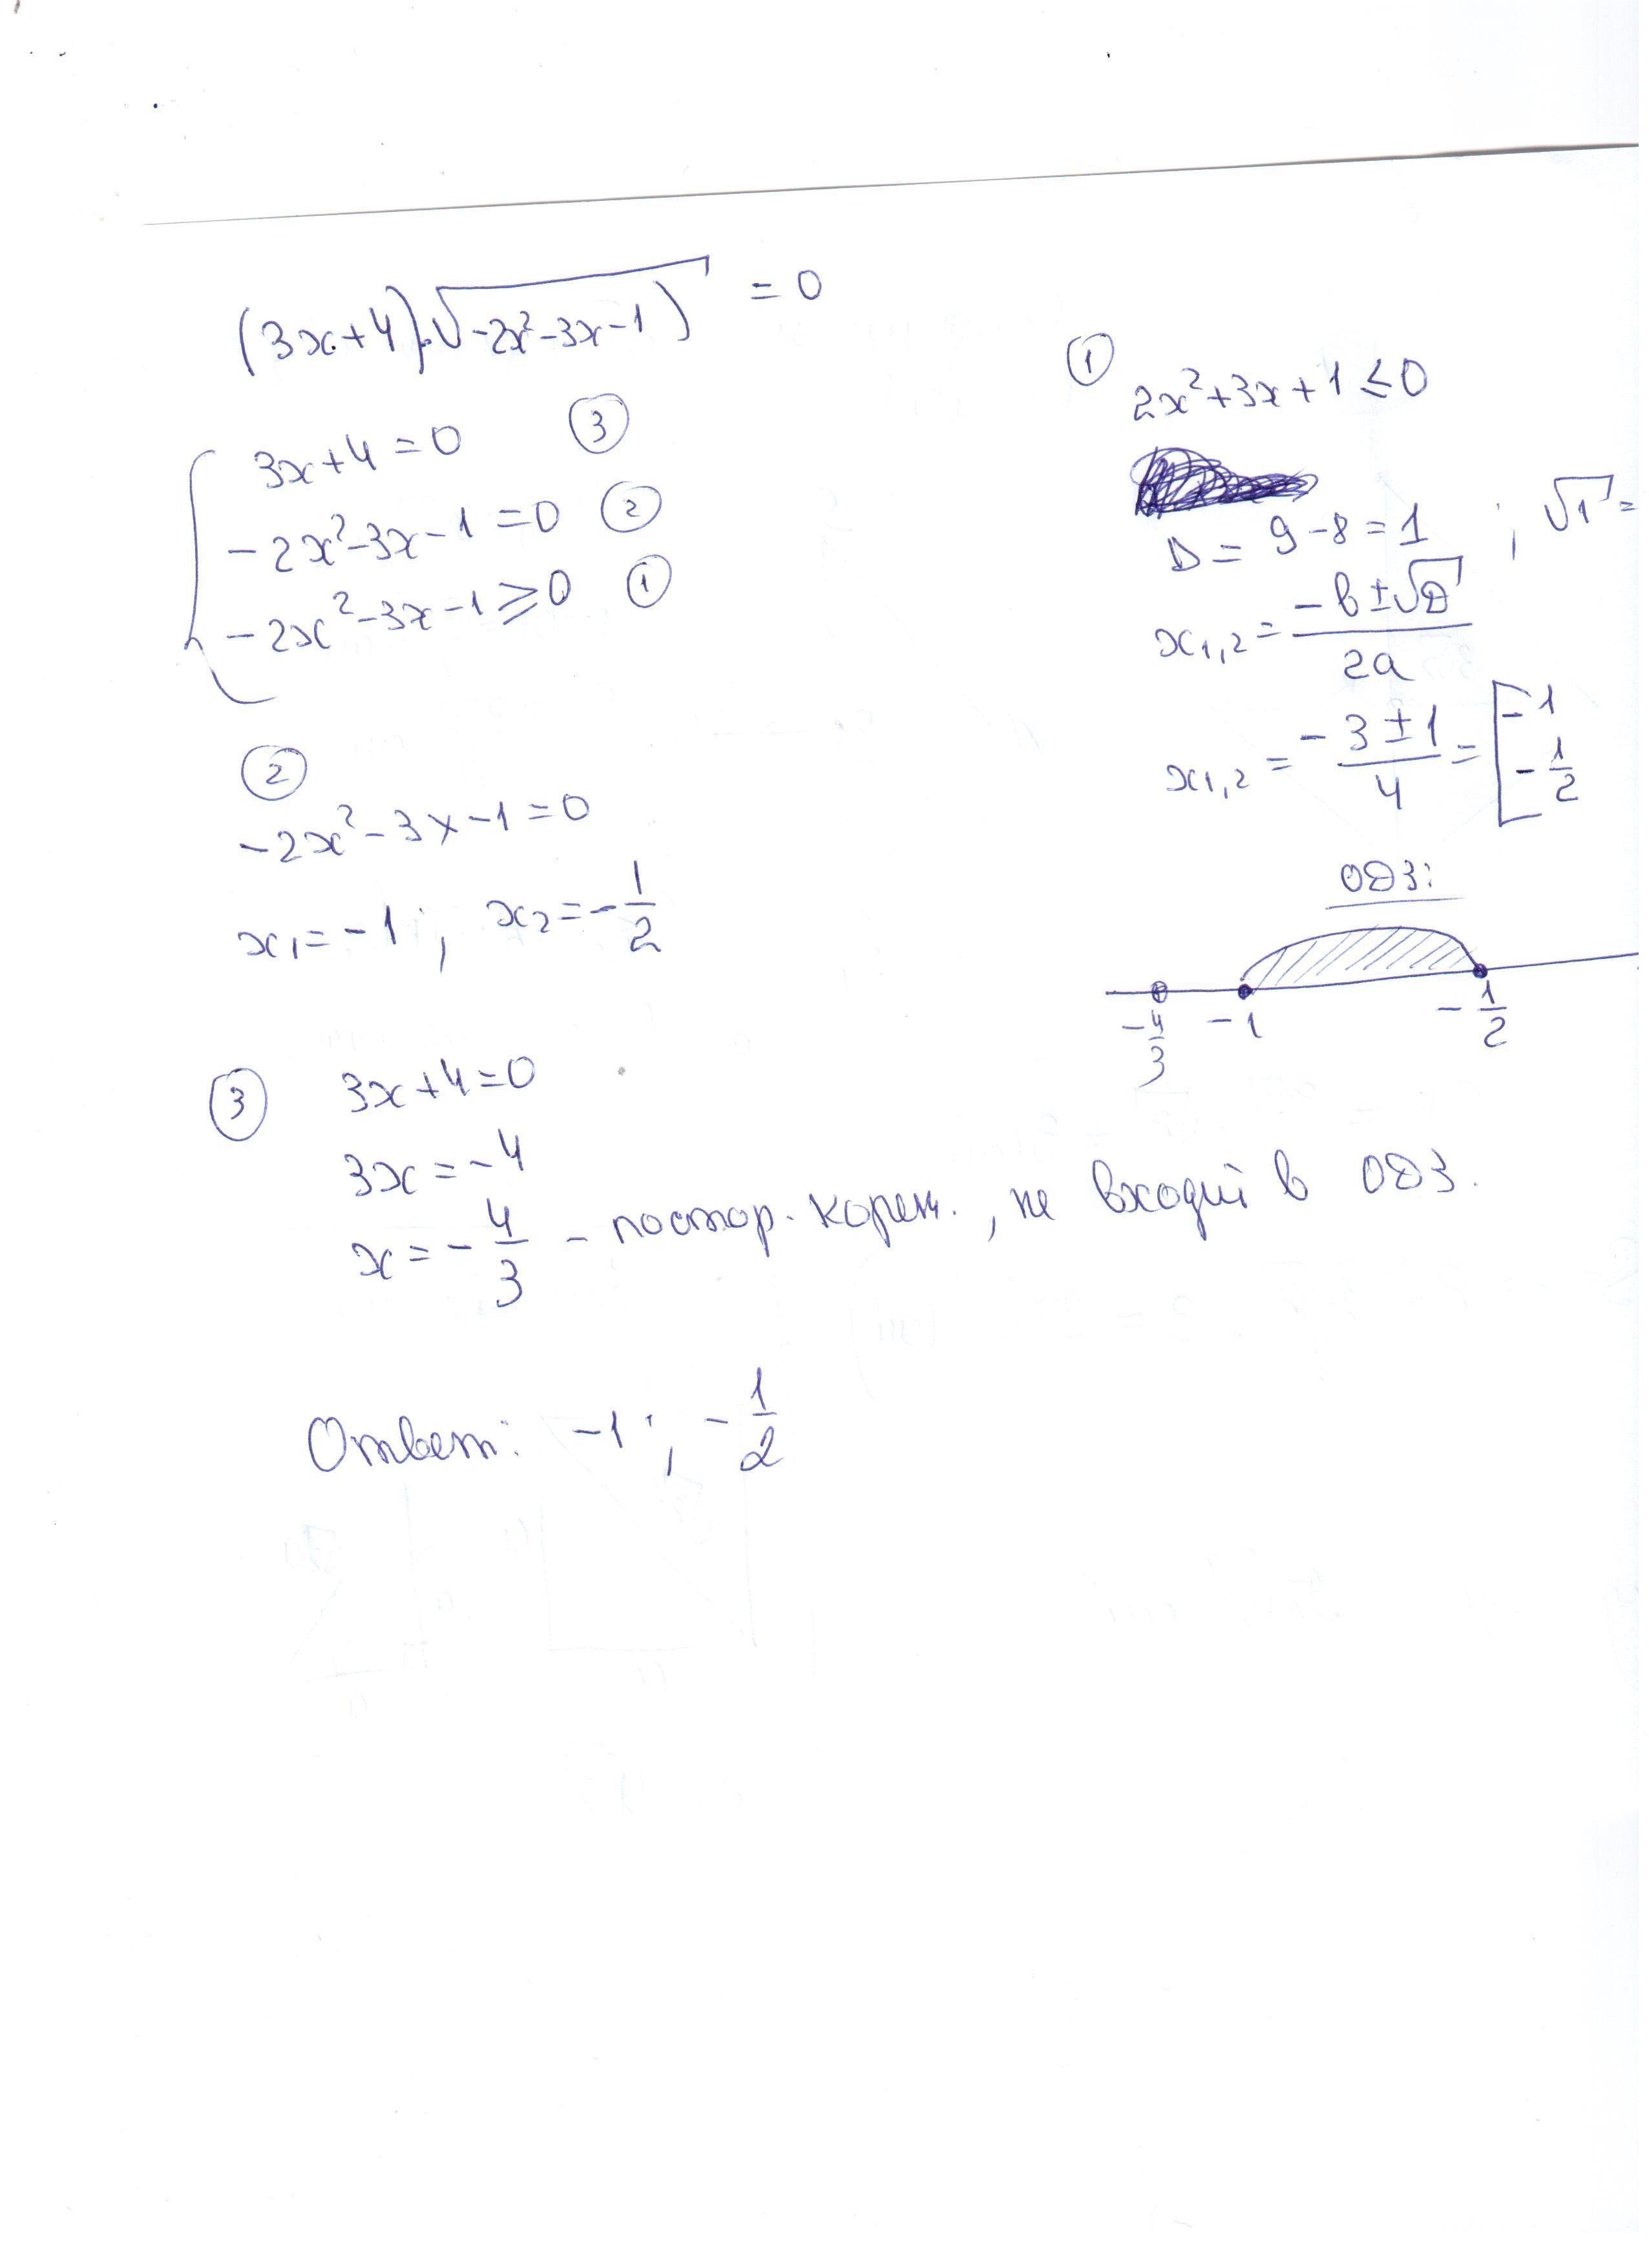 (3x+4)·√(-2x²-3x-1) = 0
3x+4=0 ③
-2x²-3x-1=0 ②
-2x²-3x-1≥0 ①
②
-2x²-3x-1=0
x₁=-1; x₂=-1/2
③ 3x+4=0
3x=-4
x=-4/3 - постор. корен., не входит в ОДЗ.
Ответ: -1; -1/2
①
2x²+3x+1≤0
D=9-8=1; √1=
x₁,₂=(-b±√D)/2a
x₁,₂=(-3±1)/4=[-1
-1/2
ОДЗ:
-4/3 -1 -1/2